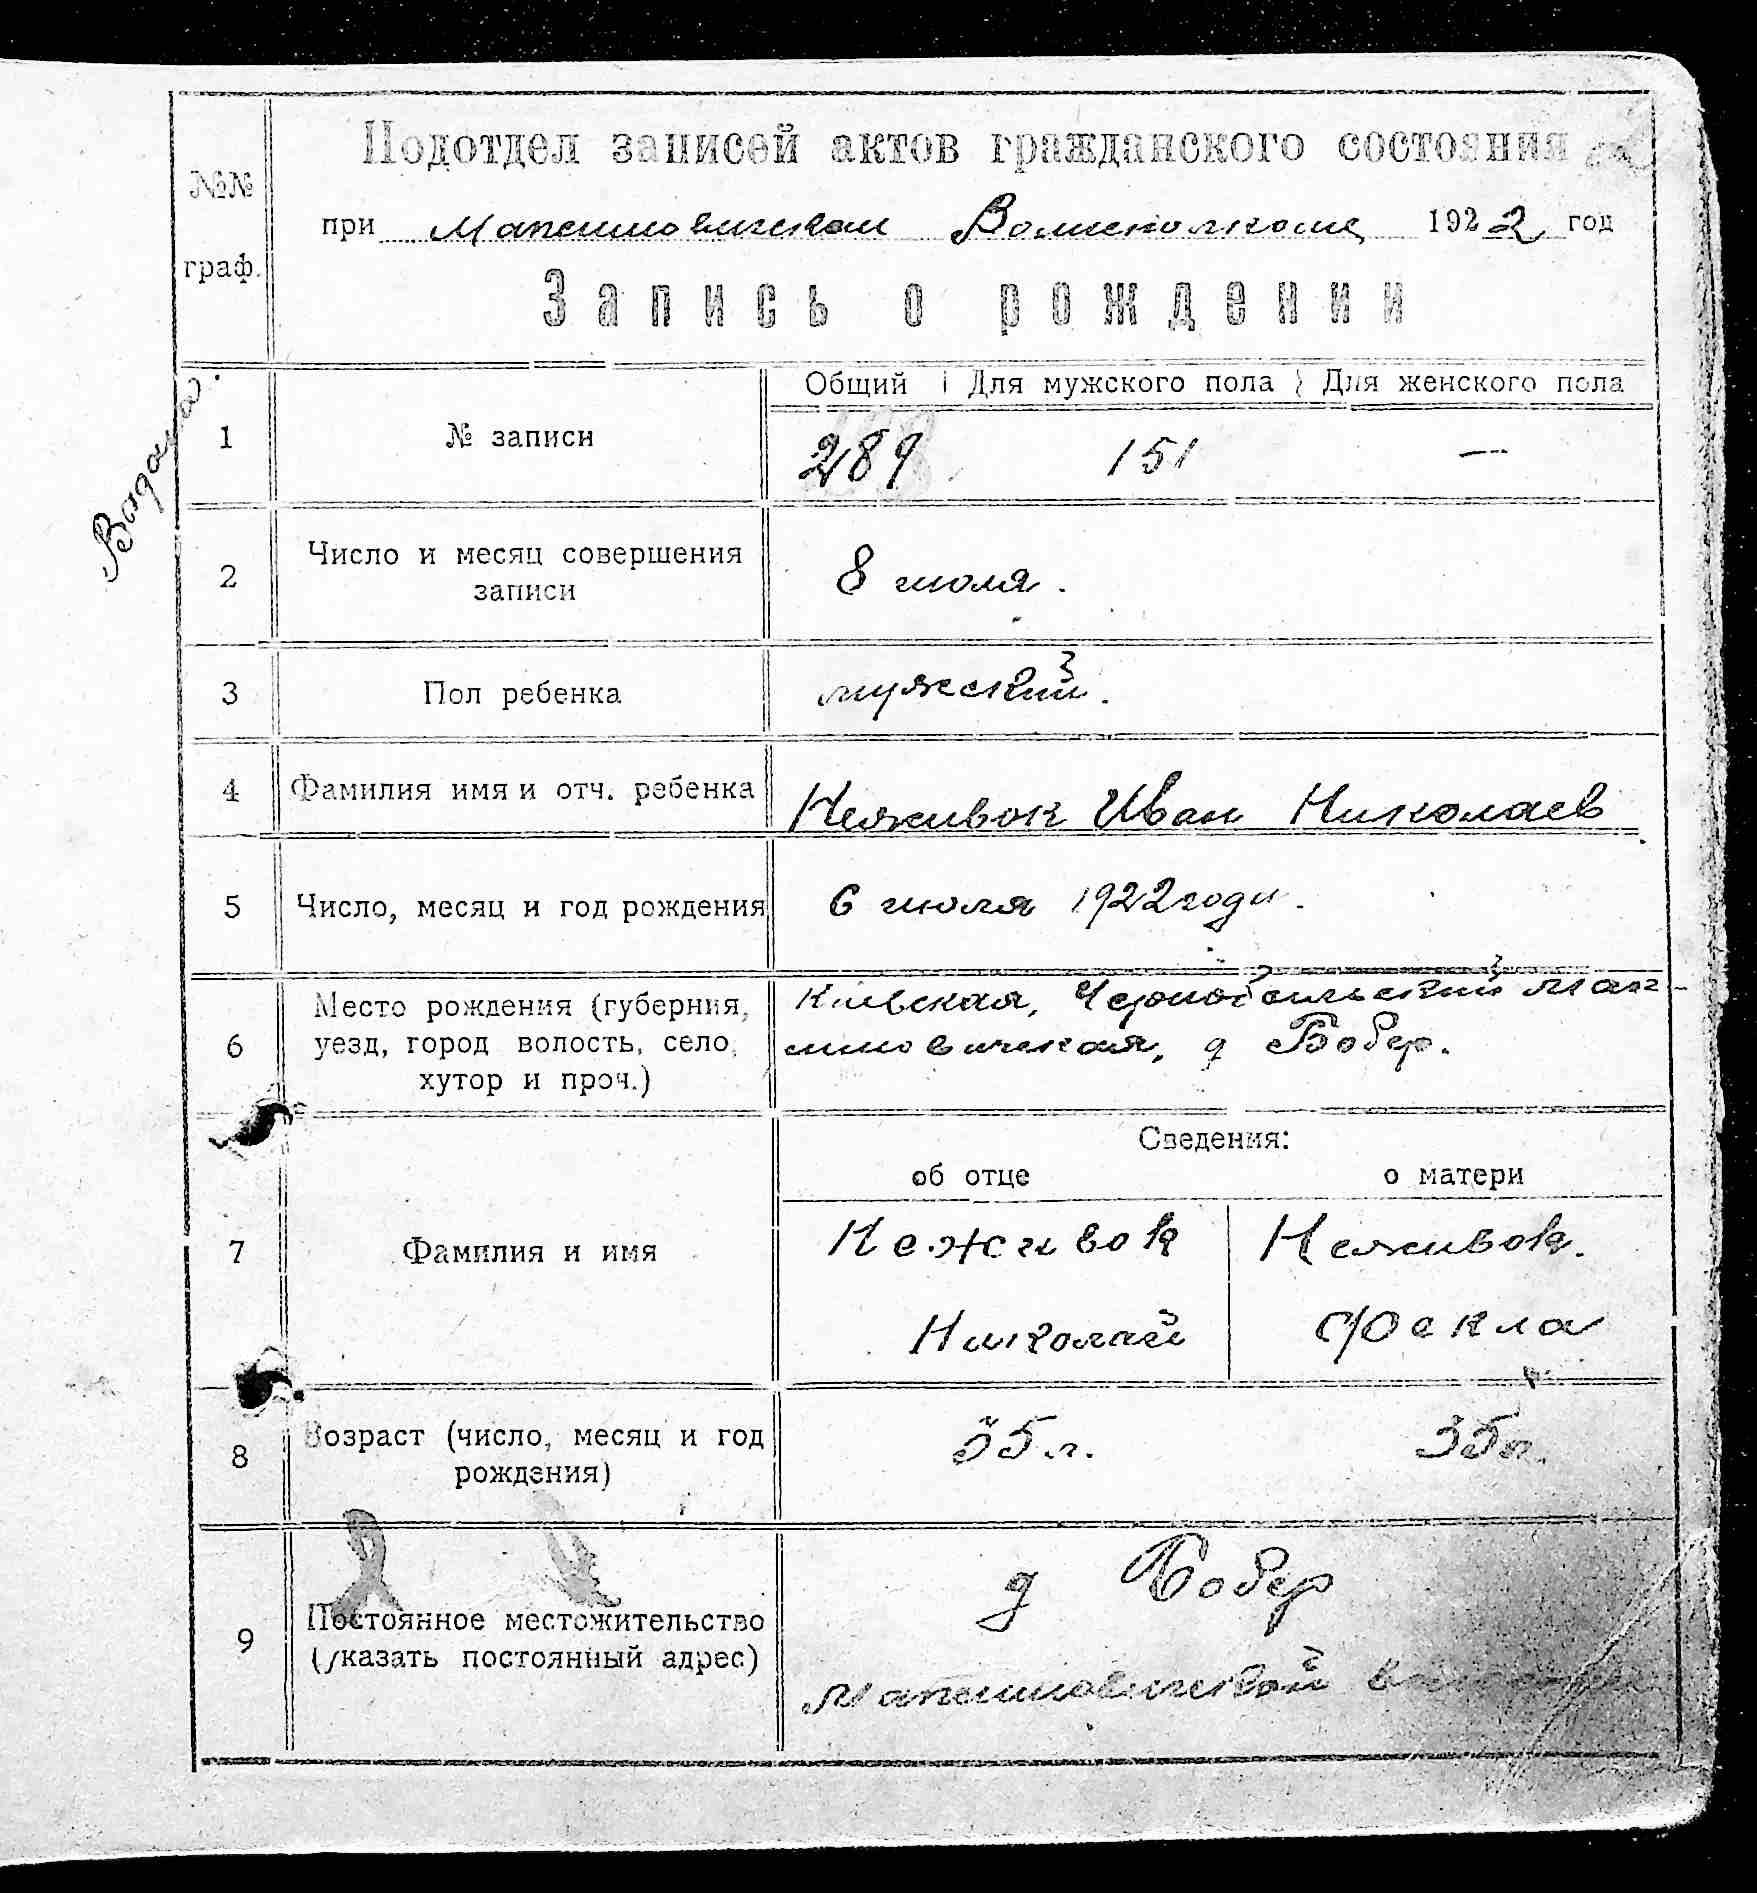 Подотдел записей актов гражданского состояния
№№ граф.
при Максимовичском Волисполкоме 1922 год
Запись о рождении
Общий Для мужского пола Для женского пола
1 № записи 289 151 —
2 Число и месяц совершения записи 8 июля.
3 Пол ребенка мужский.
4 Фамилия имя и отч. ребенка Неживок Иван Николаев
5 Число, месяц и год рождения 6 июля 1922 года.
6 Место рождения (губерния, уезд, город волость, село, хутор и проч.)
Киевская, Чернобыльский Мак-
симовичская, д Бобер.
Сведения:
об отце о матери
7 Фамилия и имя
Неживок Неживок.
Николай Фекла
8 Возраст (число, месяц и год рождения) 35 л. 35 л.
9 Постоянное местожительство (указать постоянный адрес)
д Бобер
Максимовичской